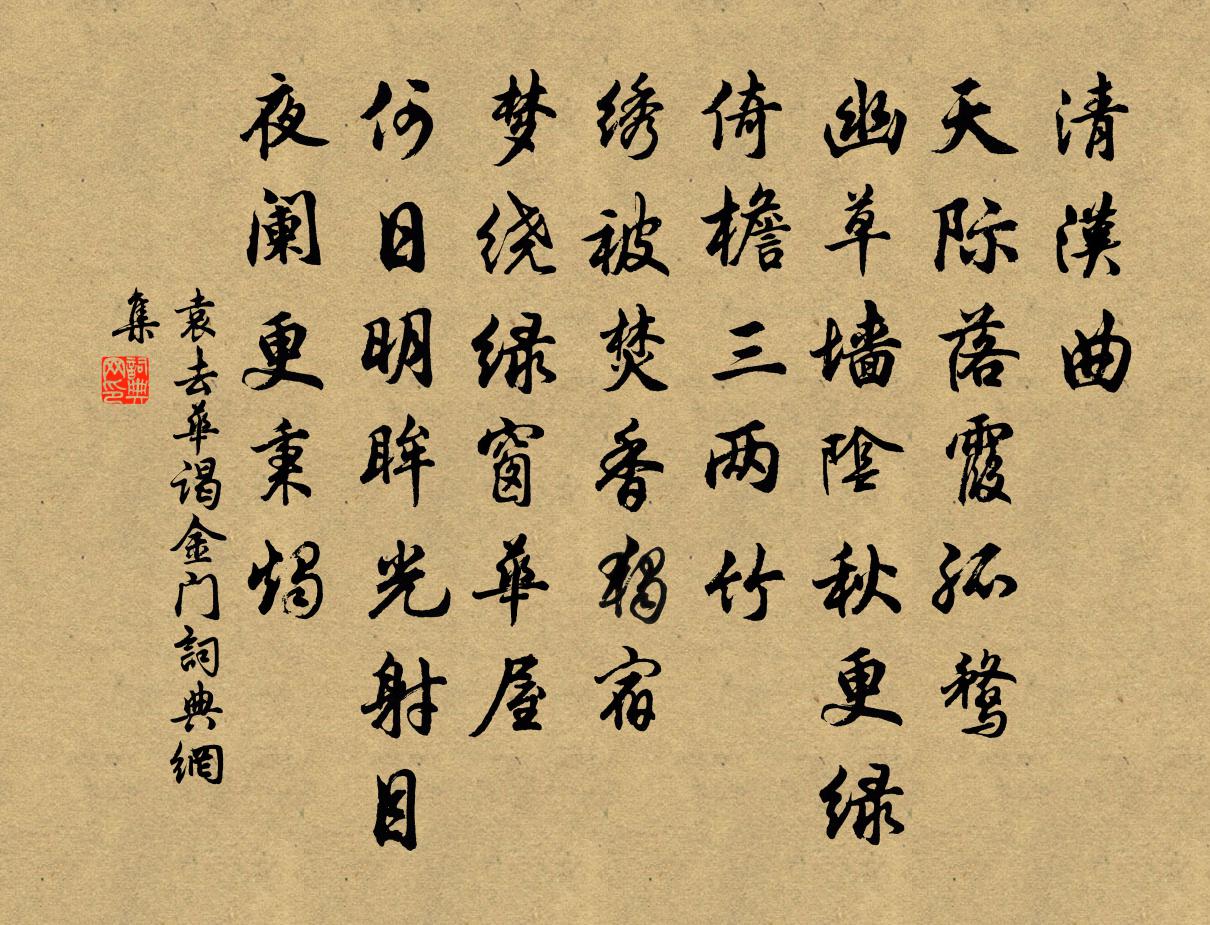 清漢曲
天际落霞孤鹜
幽草墙陰秋更绿
倚檐三两竹
绣被焚香獨宿
梦绕绿窗華屋
何日明眸光射目
夜阑更秉燭
袁去華谒金门詞典網
集
詞典
网印